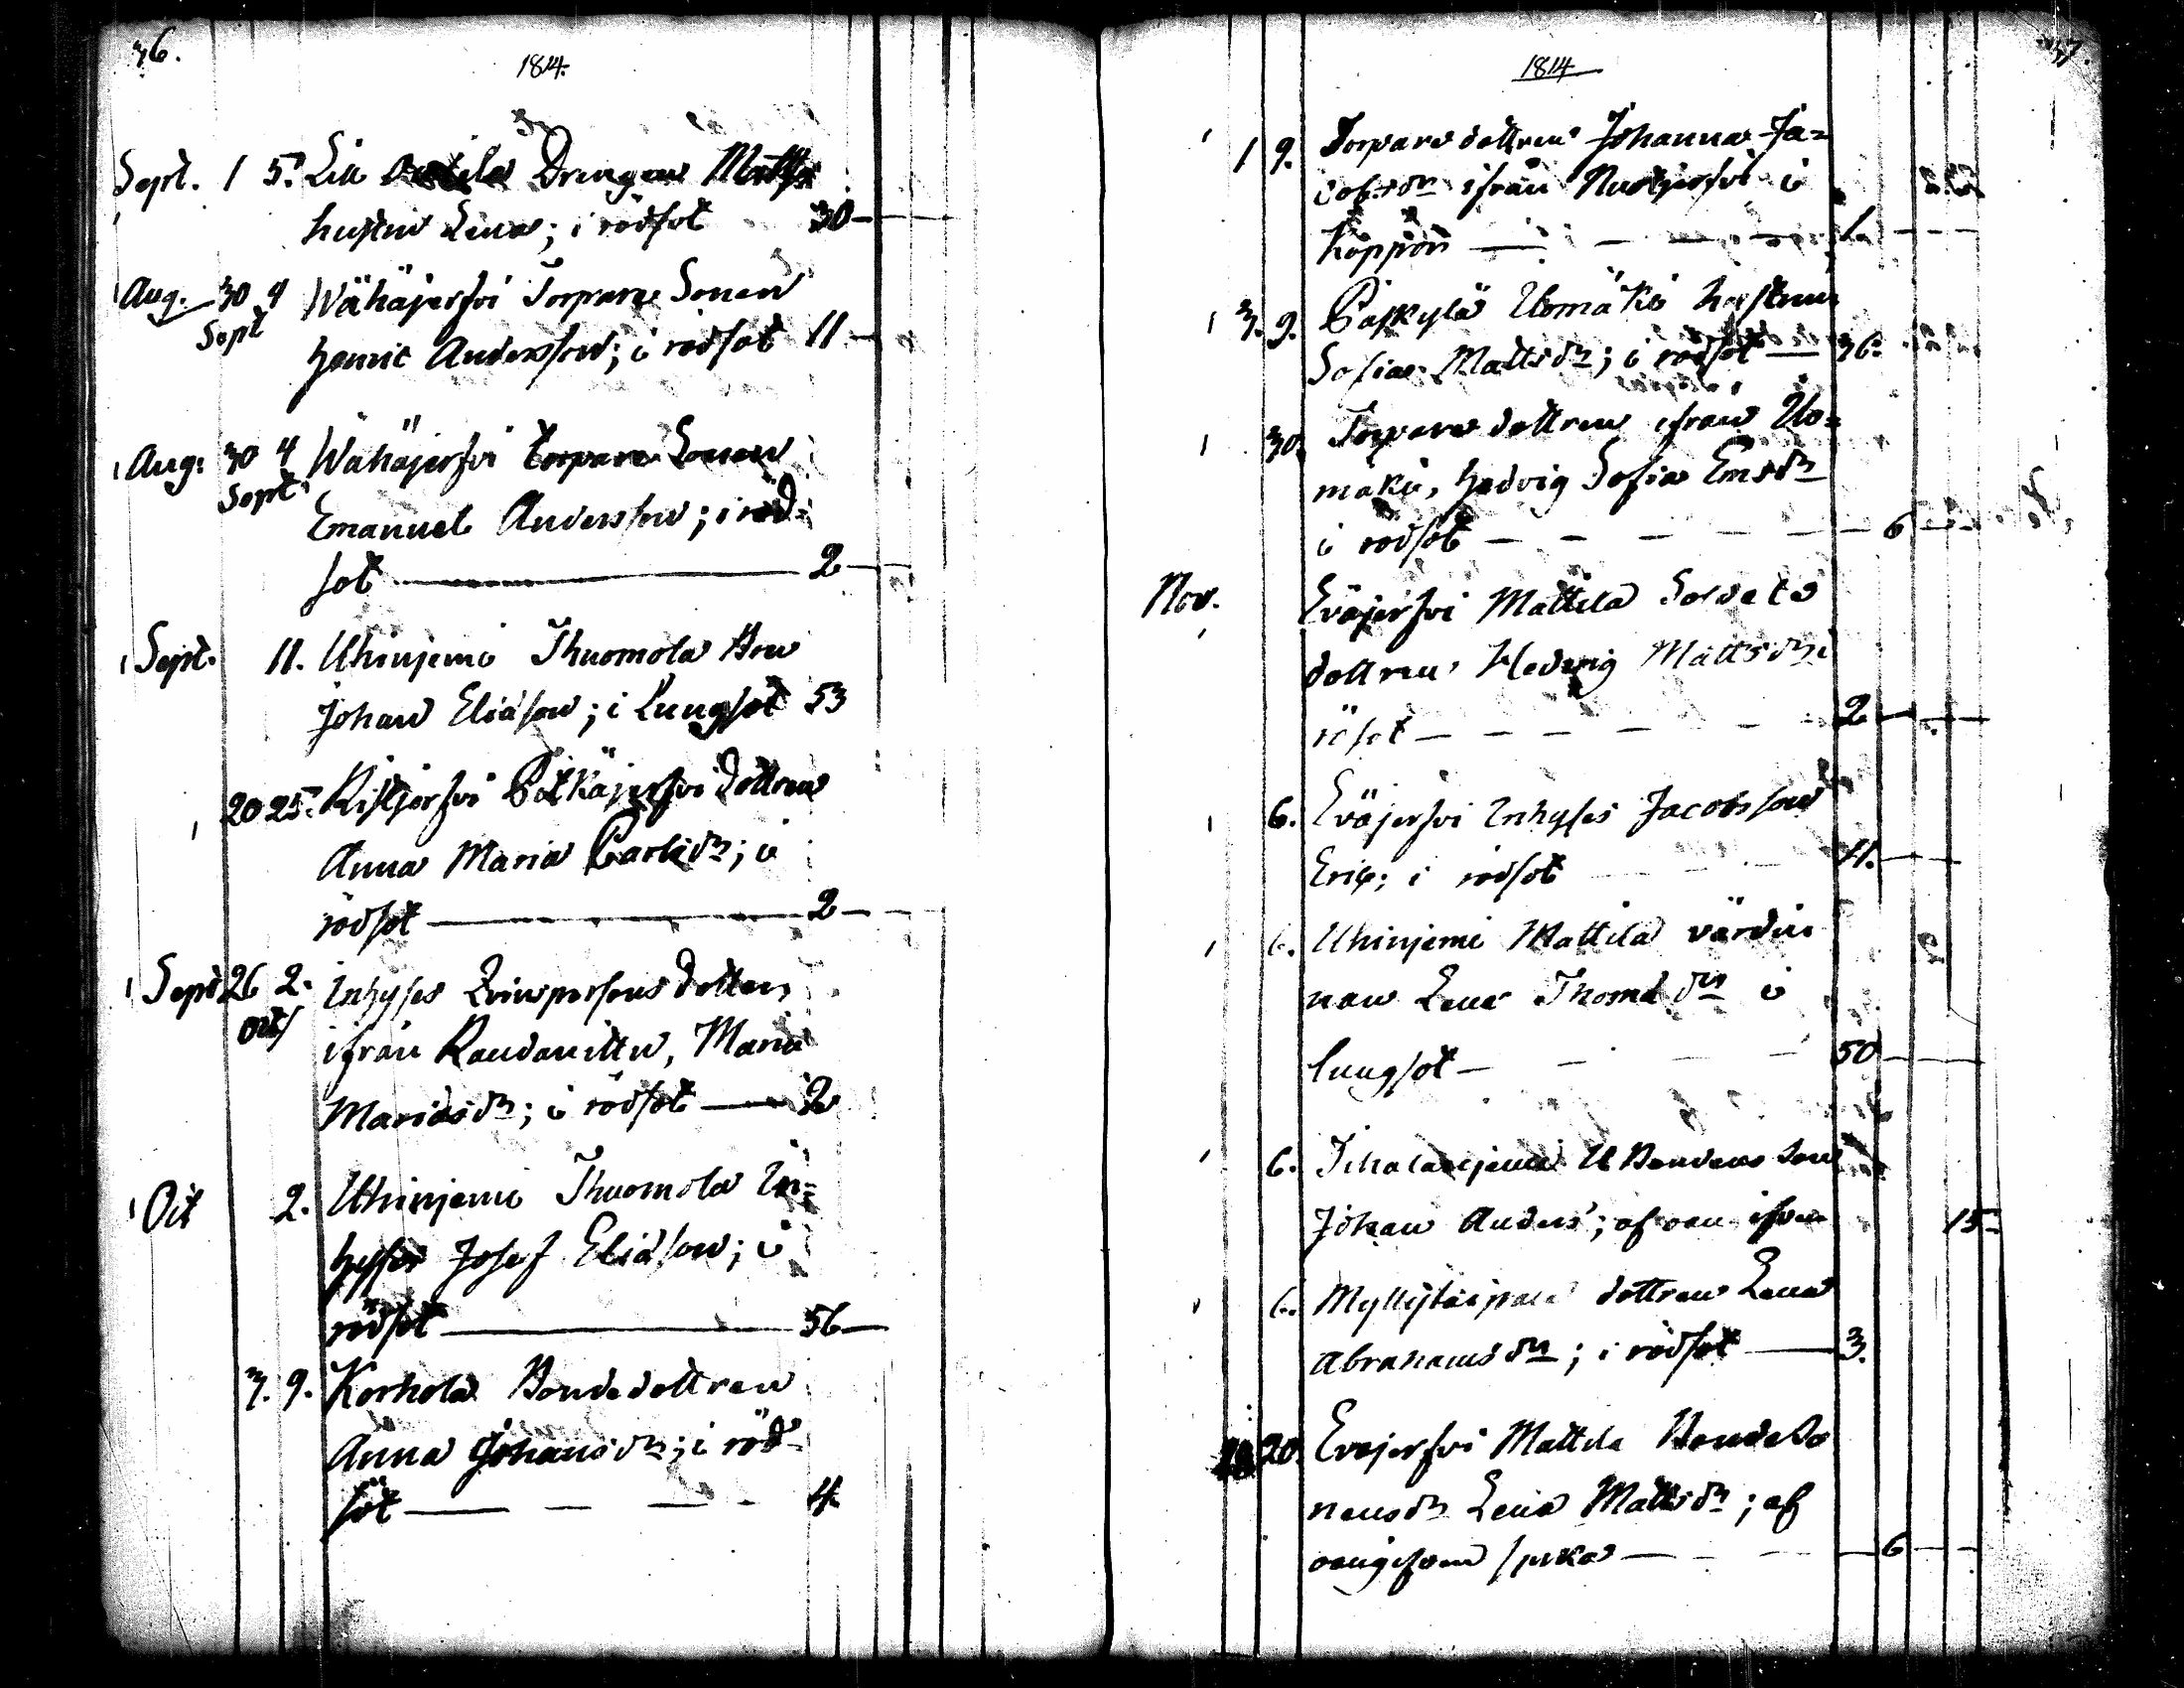 36.
1814.
Sept. 1 5. Lill Drengen Matts
hustru Lena; i rödsot 30
Aug. 30 4 Wähäjerfvi Torpare Sonen
Sept
Henric Andersson; i rödsot 11
Aug: 30 4 Wähäjerfvi torpare Sonen
Sept
Emanuel Andersson; i röd-
sot 2
Sept. 11. Uhinjemi Thuomola Bon
Johan Eliasson; i Lungsot 53
20 25. Kistjerfvi Pitkäjerfvi dottren
Anna Maria Carlsdr; i
rödsot 2
Sept 26 2. Inhyses Qvinspersons dotter,
Oct
ifrån Randanittu, Maria
Mariasdr; i rödsot 2
Oct 2. Uhinjemi Thuomola In=
hyses Josef Eliasson; i
rödsot 56
3. 9. Korhola Bondedottren
Anna Johansdr; i röd-
sot 4
37.
1814
1 9. Torpare dottren Johanna Ja=
cobsdr ifrån i
Koppor 1
3. 9. Päskylä Uomäki hustrun
Sofia Mattsdr; i rödsot 36.
30. Torpare dottren ifrån Uo=
mäki, Hedvig Sofia Emsdr
i rödsot 6
Nov. Eväjerfvi Mattila Soldats
dottren Hedvig Mattsdr i
rösot 2
6. Eväjerfvi Inhyses Jacobsson
Eric; i rödsot 11.
6. Uhinjemi Mattila värdin
nan Lena Thomasdr i
lungsot 50
6. Bondens Son
Johan Anders; af oan gifven
15
6. Myllylä dottren Lena
Abrahamsdr; i rödsot 3.
18 20. Eväjerfvi Mattila Bondeso
nensdr Lena Mattsdr; af
oangifven sjuka 6